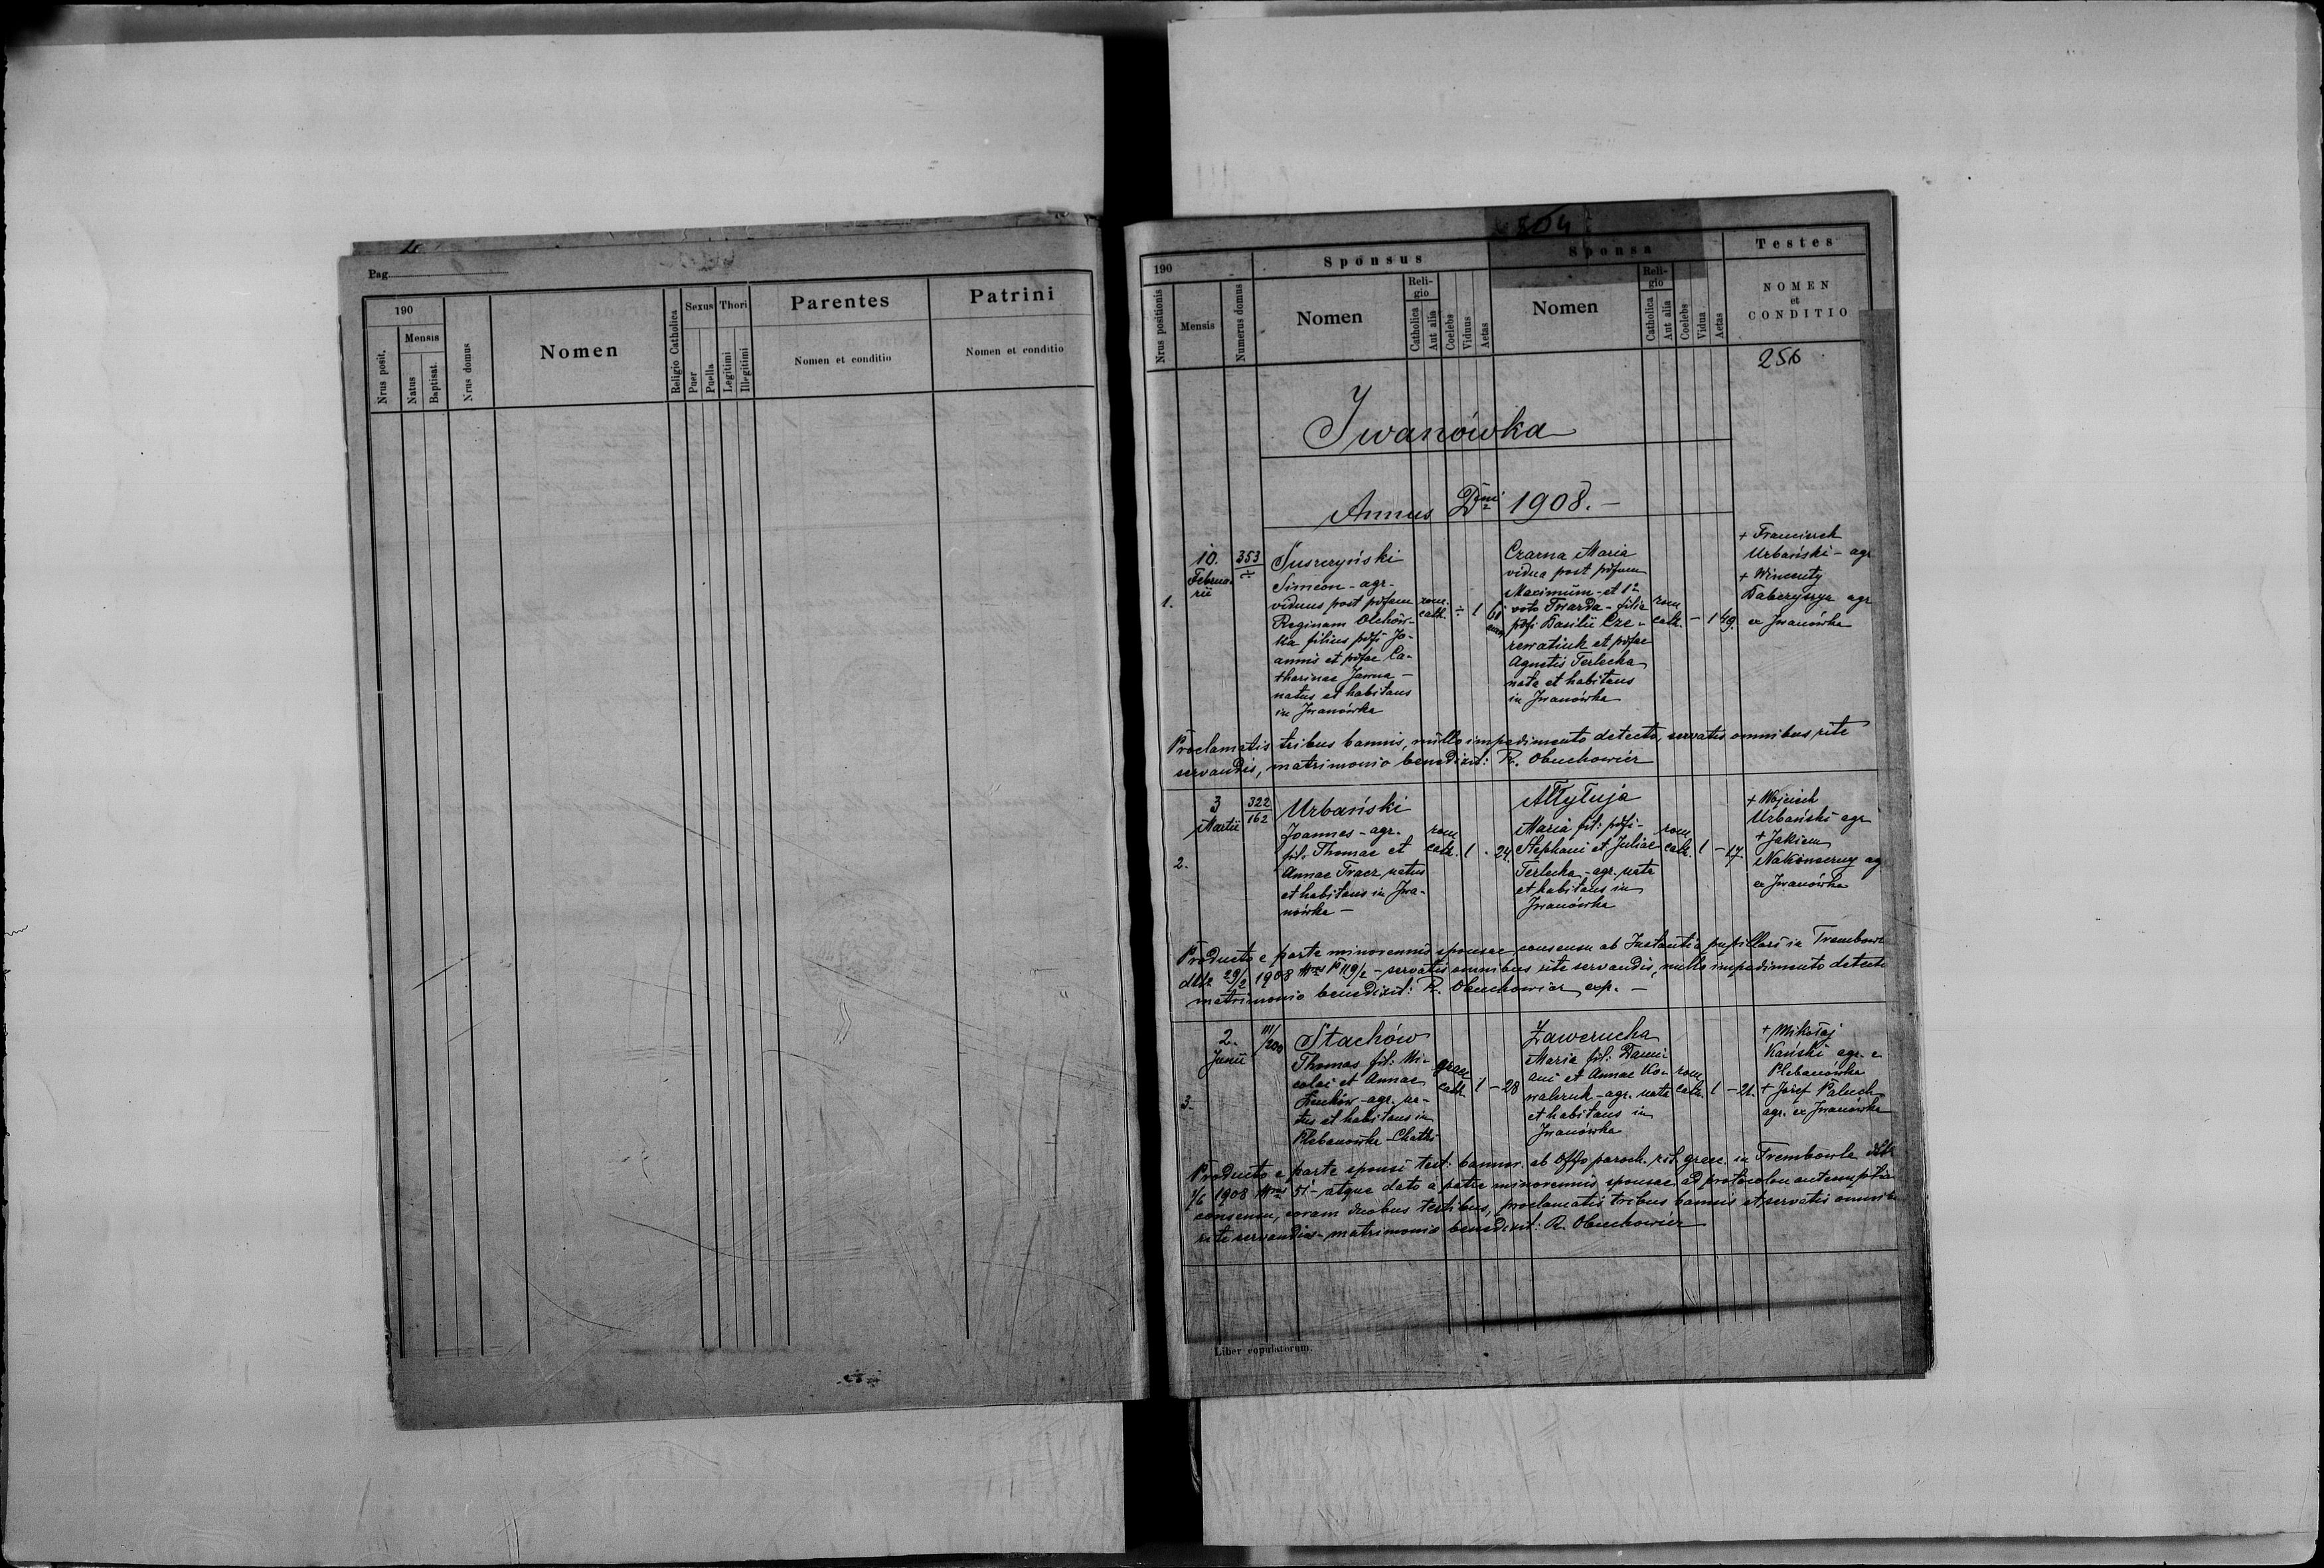 Pag
190
Nrus posit.
Mensis
Natus
Baptisat.
Nrus domus
Nomen
Religio Catholica
Sexus
Puer
Puella
Thori
Legitimi
Illegitimi
Parentes
Nomen et conditio
Patrini
Nomen et conditio
804
190
Nrus positionis
Mensis
Numerus domus
Sponsus
Nomen
Reli-
gio
Catholica
Aut alia
Coelebs
Viduus
Aetas
Sponsa
Nomen
Reli-
gio
Catholica
Aut alia
Coelebs
Vidua
Aetas
Testes
NOMEN
et
CONDITIO
256
Iwanówka
Annus Dni 1908. -
1.
10.
Februa-
rii
353
Suszczyński
Simeon - agr.
viduus post pdfam
Reginam Olchów-
ka filius pdfi Jo-
annis et pdfae Ca-
tharinae Jawna -
natus et habitans
in Iwanówka
rom.
cath. ÷ 1 61
Czarna Maria
vidua post pdfum
Maximum - et 1º
voto Twarda - filia
pdfi Basilii Cze-
rewatiuk et pdfae
Agnetis Terlecka
nata et habitans
in Iwanówka
rom
cath. - 1 49.
+ Franciszek
Urbański - agr
+ Wincenty
Baberzysyn agr
ex Iwanówka
Proclamatis tribus bannis, nullo impedimento detecto, servatis omnibus rite
servandis, matrimonio benedixit: R. Obuchowicz
2.
3
Martii
322
162
Urbański
Joannes - agr.
fil. Thomae et
Annae Tracz natus
et habitans in Iwa-
nówka -
rom
cath. 1 - 24
Ałłyłuja
Maria fil: pdfi -
Stephani et Juliae
Terlecka - agr. nata
et habitans in
Iwanówka
rom
cath. 1 - 17.
+ Wojciech
Urbański agr
+ Jakiem
Nakoneczny ag
ex Iwanówka
Producto e parte minorennis sponsae consensu ab Instantia pupillari in Trembowl
dtto 29/2 1908 Nrus P 119/2 - servatis omnibus rite servandis, nullo impedimento detecto
matrimonio benedixit: R. Obuchowicz exp. -
3.
2.
Junii
111/
200
Stachów
Thomas fil: Ni-
colai et Annae
Łuków - agr. na-
tus et habitans in
Plebanówka - Chatki
graec
cath. 1 - 28
Zawerucha
Maria fil: Dami-
ani et Annae Ko-
walczuk - agr. nata
et habitans in
Iwanówka
rom
cath. 1 - 21.
+ Mikołaj
Kański agr. e
Plebanówka
+ Josef Paluch
agr. ex Iwanówka
Producto e parte sponsi test: bannor. ab Offo paroch. rit. graec. in Trembowla dtto
1/6 1908 Nrus 51 - atque dato a patre minorennis sponsae ad protocolon antenuptiale
consensu, coram duobus testibus, proclamatis tribus bannis et servatis omnibus
rite servandis - matrimonio benedixit: R. Obuchowicz
Liber copulatorum.